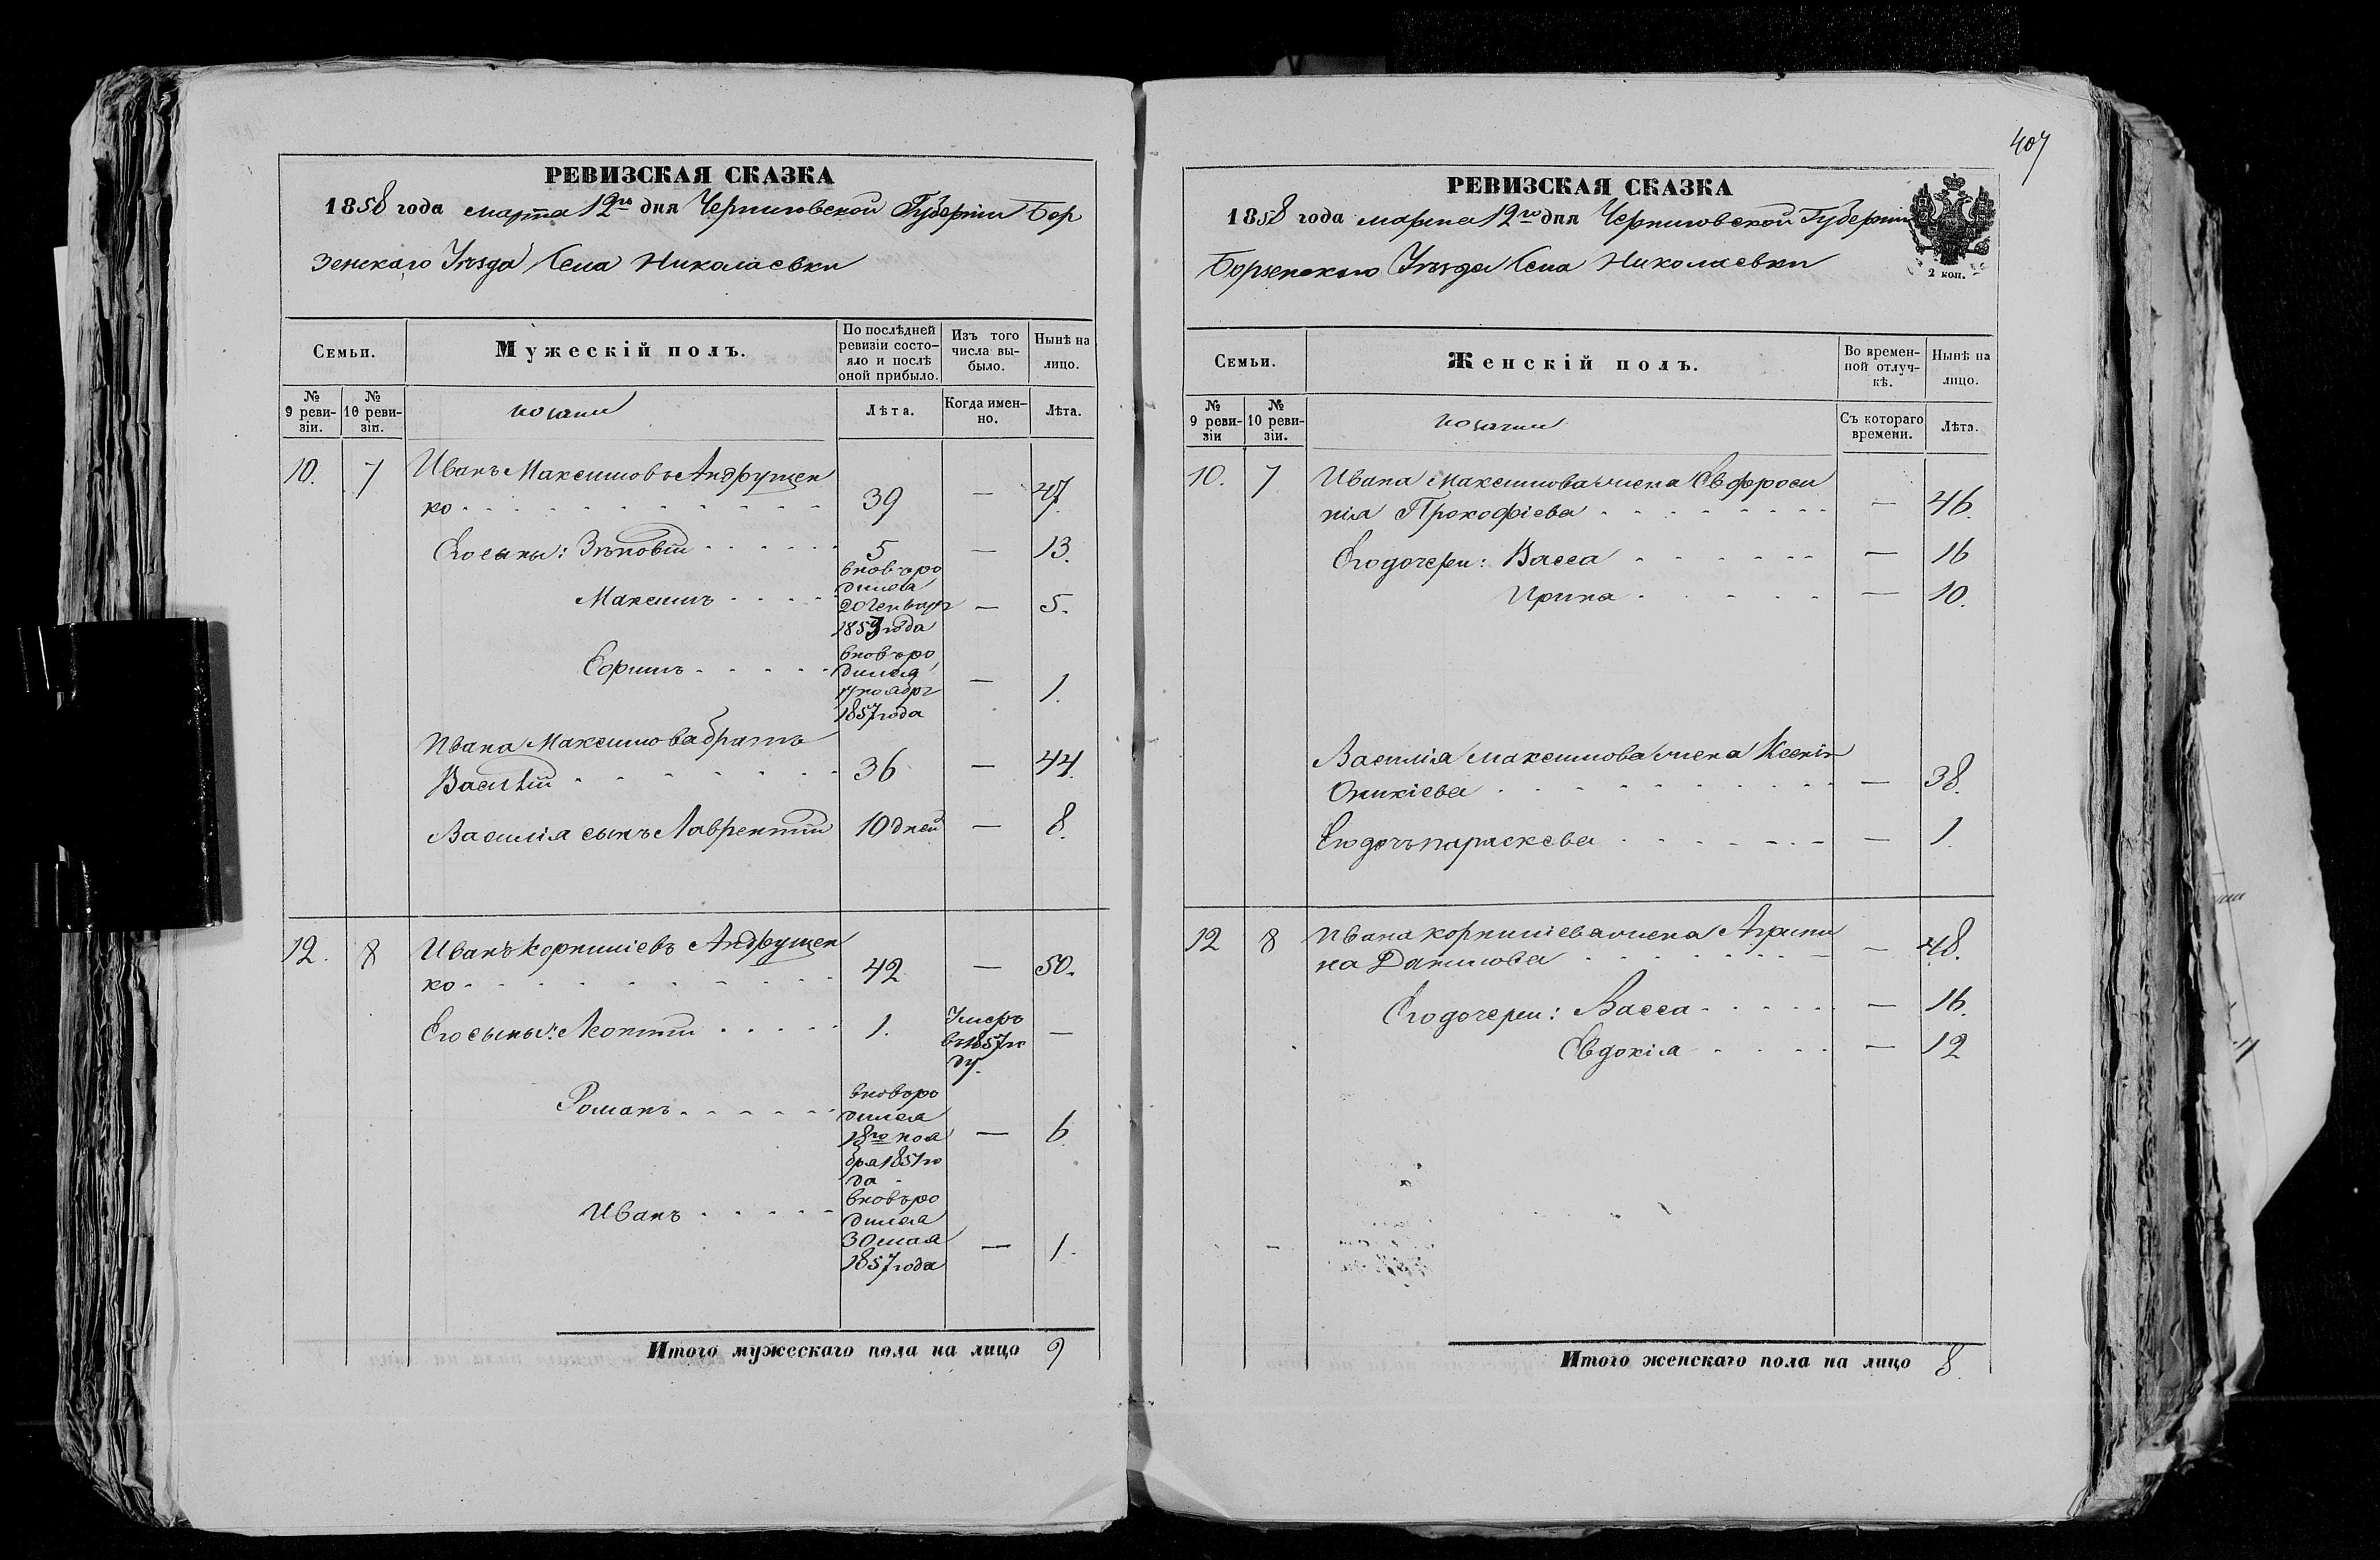 РЕВИЗСКАЯ СКАЗКА
1858 года марта 12го дня Черниговской Губерніи Бор
зенскаго Уѣзда Села Николаевки
Семьи.
Мужескій полъ.
По послѣдней
ревизіи состо-
яло и послѣ
оной прибыло.
Изъ того
числа вы-
было.
Нынѣ на
лицо.
№
9 реви-
зіи.
№
10 реви-
зіи.
козаки
Лѣта.
Когда имен-
но.
Лѣта.
10. 7 Иванъ Максимовъ Андрущен
ко 39 — 47.
Его сыны: Зѣновій 5 — 13.
Максимъ
вновь ро
дился
20 Генваря
1853 года
— 5.
Ефримъ
вновь ро
дился
17 ноября
1857 года
— 1.
Ивана Максимова братъ
Василій 36 — 44.
Василія сынъ Лаврентій 10 дней — 8.
12. 8 Иванъ Корниліевъ Андрущен
ко 42 — 50.
Его сыны: Леонтій 1.
Умеръ
въ 1857 го
ду.
—
Романъ
вновь ро
дился
18го ноя
бря 1851 го
да
— 6
Иванъ
вновь ро
дился
30 мая
1857 года
— 1.
Итого мужескаго пола на лицо 9
407
РЕВИЗСКАЯ СКАЗКА
1858 года марта 12го дня Черниговской Губерніи
Борзенскаго Уѣзда Села Николаевки
2 коп.
Семьи.
Женскій полъ.
Во времен-
ной отлуч-
кѣ.
Нынѣ на
лицо.
№
9 реви-
зіи
№
10 реви-
зіи.
козачки
Съ котораго
времени.
Лѣта.
10. 7 Ивана Максимова жена Евфроси
нія Прокофіева — 46.
Его дочери: Васса — 16
Ирина — 10.
Василія Максимова жена Ксенія
Оникіева — 38.
Его дочь параскева — 1.
12 8 Ивана корниліева жена Агрипи
на Данилова — 48.
Его дочери: Васса — 16.
Евдокія — 12
Итого женскаго пола на лицо 8.